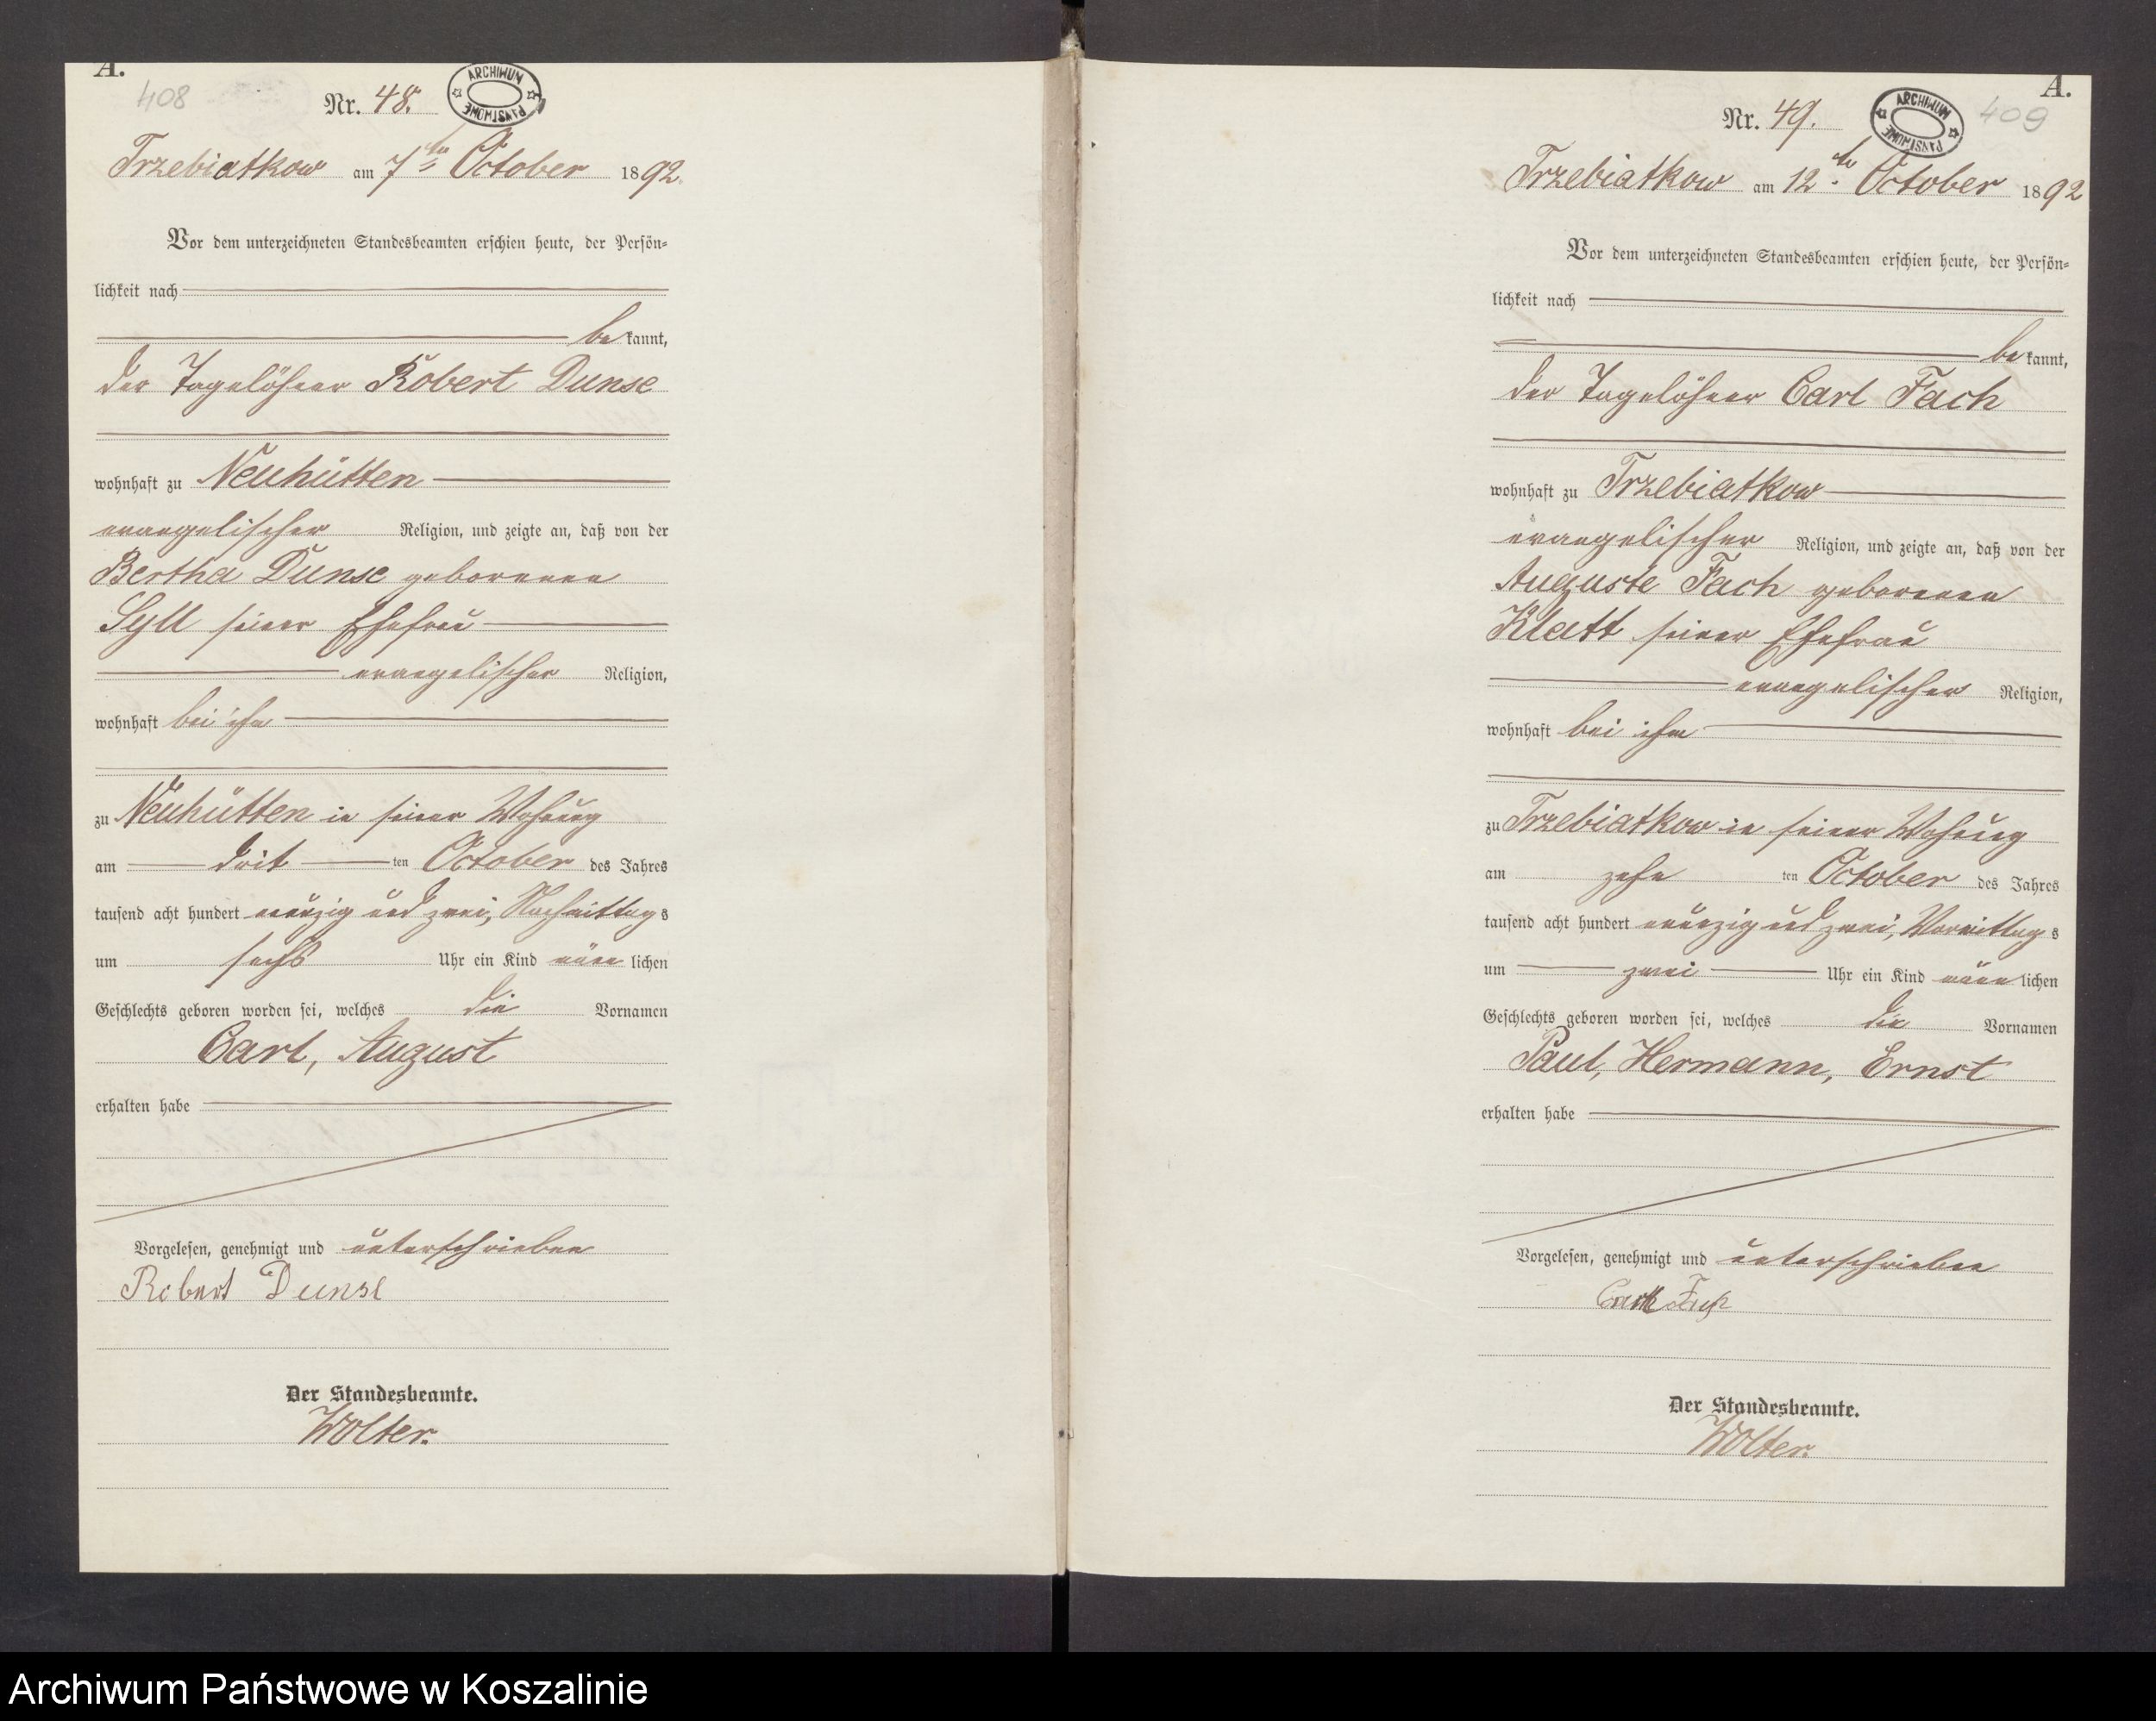 A.
408
Nr. 48.
ARCHIWUM PAŃSTWOWE
Trzebiatkow am 7ten October 1892.
Vor dem unterzeichneten Standesbeamten erschien heute, der Persön-
lichkeit nach
bekannt,
der Tagelöhner Robert Dunse
wohnhaft zu Neuhütten
evangelischer Religion, und zeigte an, daß von der
Bertha Dunse geborenen
Syll seiner Ehefrau
evangelischer Religion,
wohnhaft bei ihm
zu Neuhütten in seiner Wohnung
am drit ten October des Jahres
tausend acht hundert neunzig und zwei, Nachmittags
um sechs Uhr ein Kind männlichen
Geschlechts geboren worden sei, welches die Vornamen
Carl, August
erhalten habe
Vorgelesen, genehmigt und unterschrieben
Robert Dunse
Der Standesbeamte.
Wolter.
A.
409
Nr. 49.
ARCHIWUM PAŃSTWOWE
Trzebiatkow am 12ten October 1892
Vor dem unterzeichneten Standesbeamten erschien heute, der Persön-
lichkeit nach
bekannt,
der Tagelöhner Carl Fach
wohnhaft zu Trzebiatkow
evangelischer Religion, und zeigte an, daß von der
Auguste Fach geborenen
Klatt seiner Ehefrau
evangelischer Religion,
wohnhaft bei ihm
zu Trzebiatkow in seiner Wohnung
am zehn ten October des Jahres
tausend acht hundert neunzig und zwei, Vormittags
um zwei Uhr ein Kind männlichen
Geschlechts geboren worden sei, welches die Vornamen
Paul, Hermann, Ernst
erhalten habe
Vorgelesen, genehmigt und unterschrieben
Carl Fach
Der Standesbeamte.
Wolter.
Archiwum Państwowe w Koszalinie